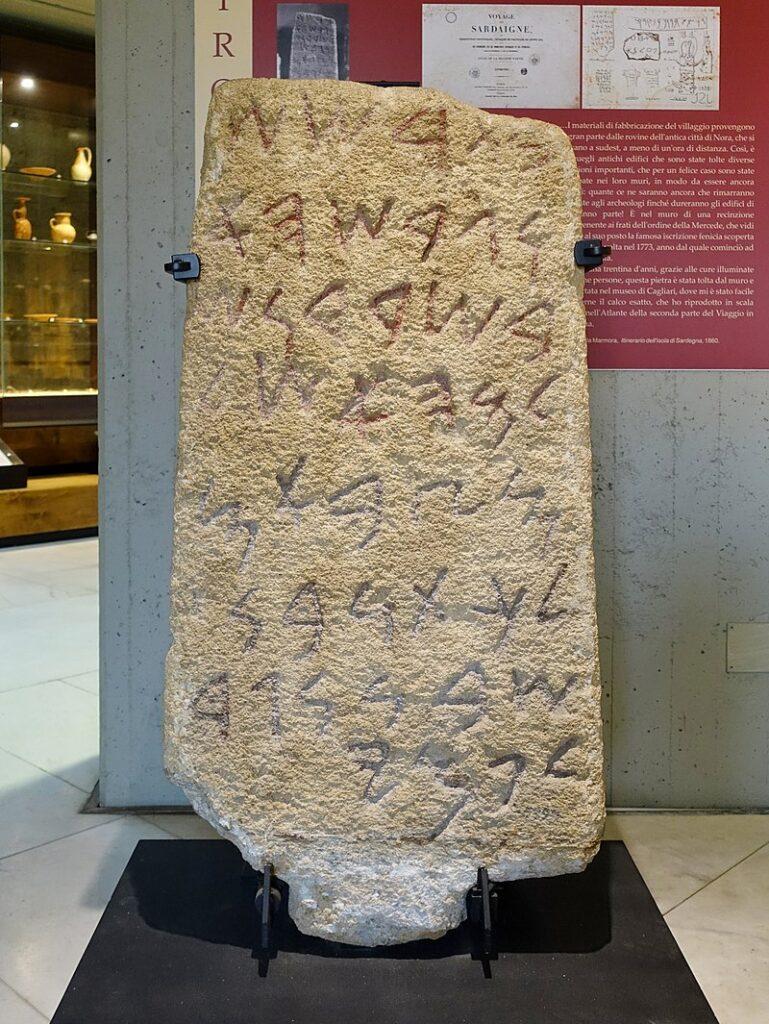 TRO
VOYAGE
SARDAIGNE,
𐤁𐤕𐤓𐤔𐤔
𐤅𐤂𐤓𐤔𐤄𐤀
𐤁𐤔𐤓𐤃𐤍𐤔
𐤋𐤌𐤄𐤀𐤔𐤋
𐤌𐤑𐤁𐤀𐤌
𐤋𐤊𐤕𐤍𐤁𐤍
𐤔𐤁𐤍𐤍𐤂𐤓
𐤋𐤐𐤌𐤉
...I materiali di fabbricazione del villaggio provengono
gran parte dalle rovine dell'antica città di Nora, che si
a sudest, a meno di un'ora di distanza. Così, è
antichi edifici che sono state tolte diverse
importanti, che per un felice caso sono state
nei loro muri, in modo da essere ancora
quante ce ne saranno ancora che rimarranno
agli archeologi finché dureranno gli edifici di
parte! È nel muro di una recinzione
ai frati dell'ordine della Mercede, che vidi
al suo posto la famosa iscrizione fenicia scoperta
nel 1773, anno dal quale cominciò ad
trentina d'anni, grazie alle cure illuminate
persone, questa pietra è stata tolta dal muro e
nel museo di Cagliari, dove mi è stato facile
il calco esatto, che ho riprodotto in scala
nell'Atlante della seconda parte del Viaggio in
Marmora, Itinerario dell'isola di Sardegna, 1860.